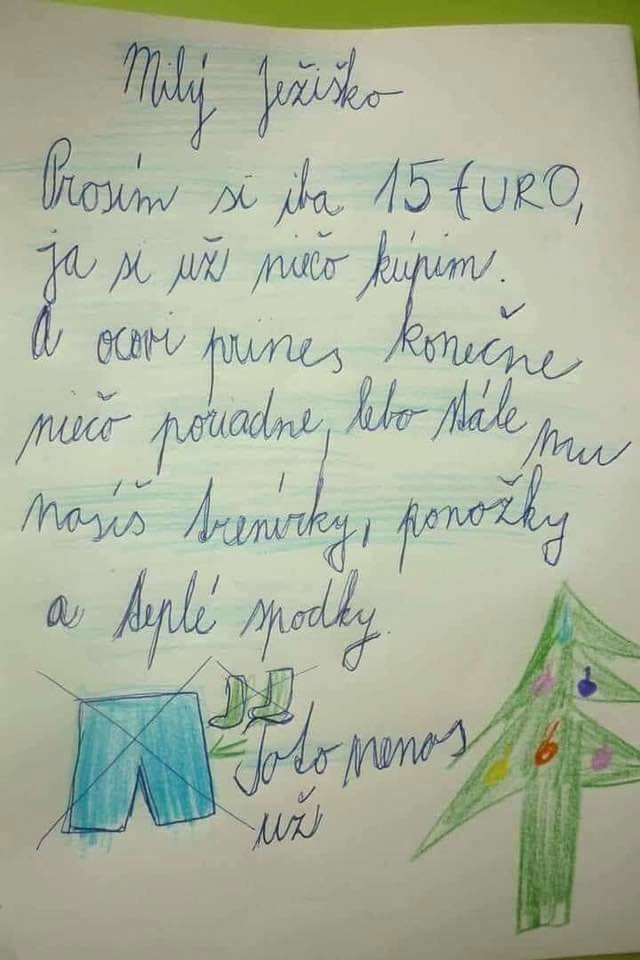 Milý Ježiško
Prosím si iba 15 EURO,
ja si už niečo kúpim.
A ocovi prines konečne
niečo poriadne, lebo stále mu
nosíš trenírky, ponožky
a teplé spodky.
Toto nenos
už